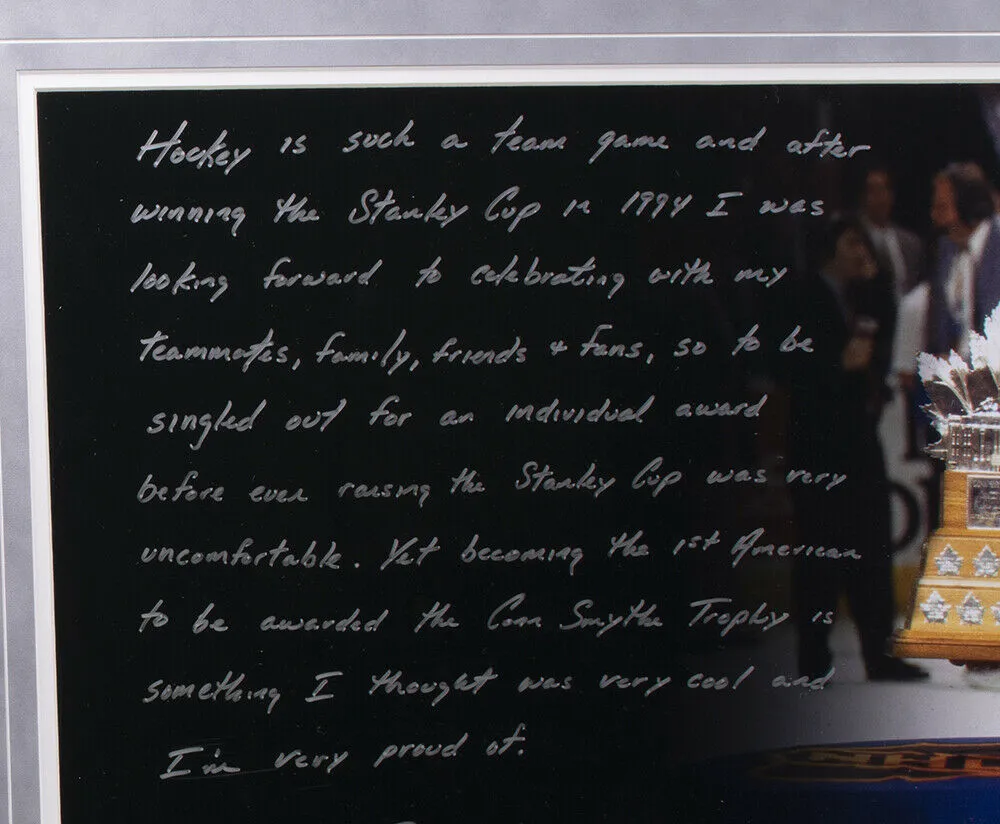 Hockey is such a team game and after
winning the Stanley Cup in 1994 I was
looking forward to celebrating with my
teammates, family, friends + fans, so to be
singled out for an individual award
before even raising the Stanley Cup was very
uncomfortable. Yet becoming the 1st American
to be awarded the Conn Smythe Trophy is
something I thought was very cool and
I'm very proud of.